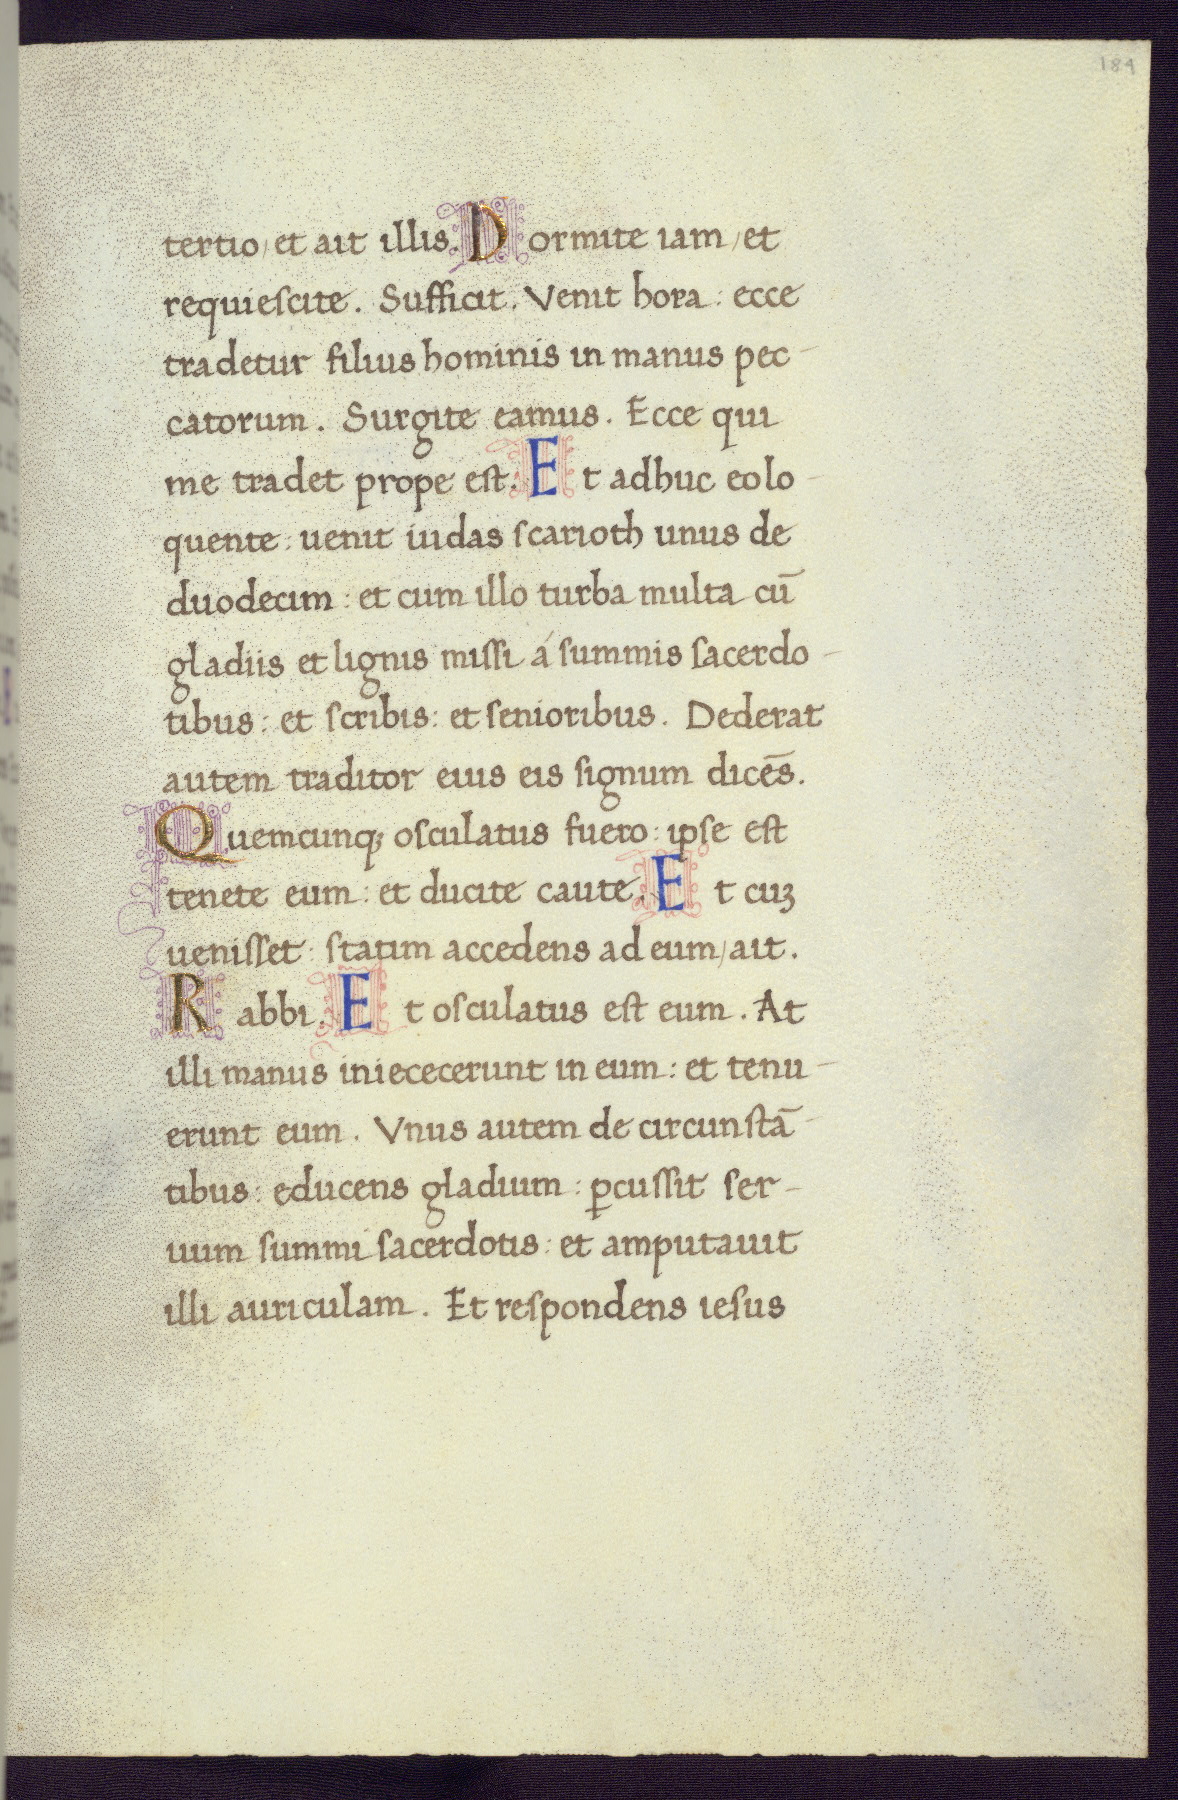 184
tertio, et ait illis. Dormite iam, et
requiescite. Sufficit. Venit hora: ecce
tradetur filius hominis in manus pec-
catorum. Surgite eamus. Ecce qui
me tradet prope est. Et adhuc eo lo-
quente: uenit iudas scarioth unus de
duodecim: et cum illo turba multa cū
gladiis et lignis missi á summis sacerdo-
tibus: et scribis: et senioribus. Dederat
autem traditor eius eis signum dicēs.
Quemcunq; osculatus fuero: ipse est
tenete eum: et ducite caute. Et cuꝫ
uenisset: statim accedens ad eum, ait.
Rabbi. Et osculatus est eum. At
illi manus iniececerunt in eum: et tenu-
erunt eum. Vnus autem de circunstā-
tibus: educens gladium: ꝑcussit ser-
uum summi sacerdotis: et amputauit
illi auriculam. Et respondens iesus